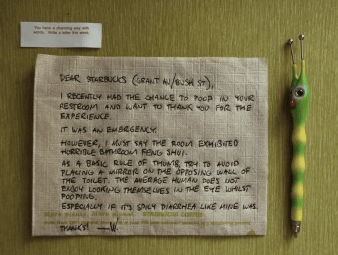 You have a charming way with
words. Write a letter this week.
DEAR STARBUCKS (GRANT AV/BUSH ST),
I RECENTLY HAD THE CHANCE TO POOP IN YOUR
RESTROOM AND WANT TO THANK YOU FOR THE
EXPERIENCE.
IT WAS AN EMERGENCY.
HOWEVER, I MUST SAY THE ROOM EXHIBITED
HORRIBLE BATHROOM FENG SHUI.
AS A BASIC RULE OF THUMB, TRY TO AVOID
PLACING A MIRROR ON THE OPPOSING WALL OF
THE TOILET. THE AVERAGE HUMAN DOES NOT
ENJOY LOOKING THEMSELVES IN THE EYE WHILST
POOPING.
ESPECIALLY IF IT'S SPICY DIARRHEA LIKE MINE WAS.
THANKS!